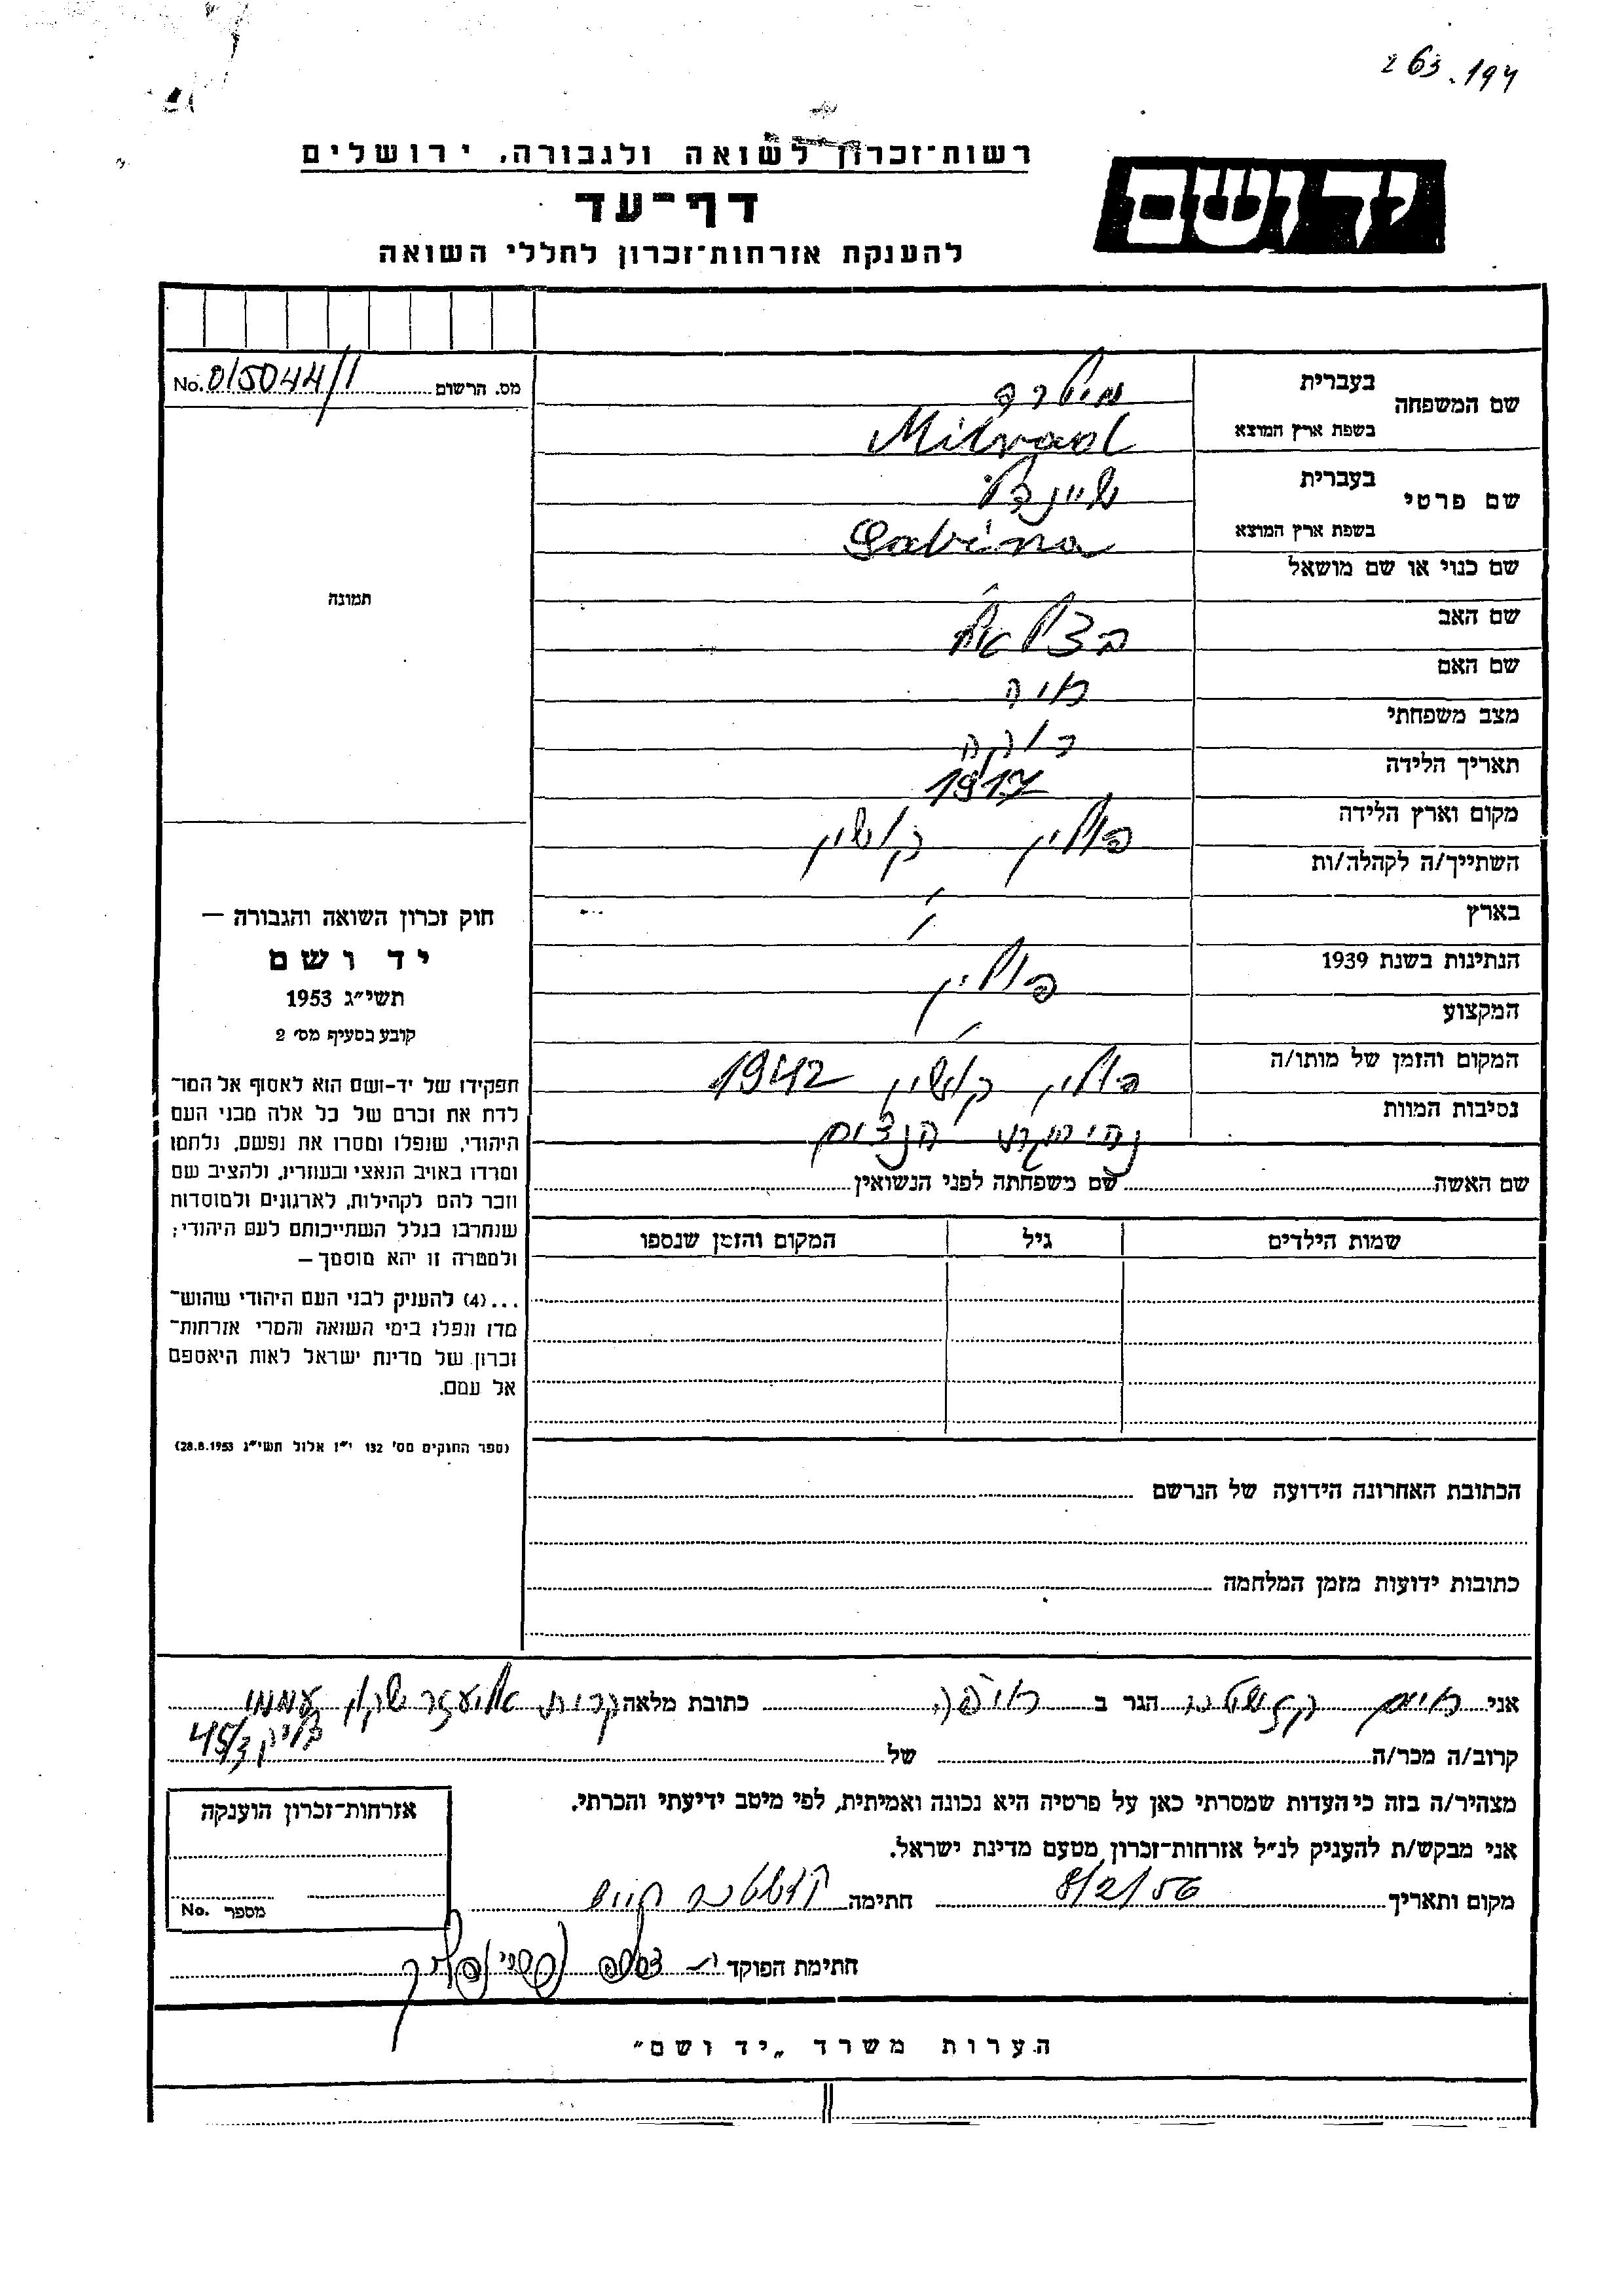 263.194
רשות־זכרון לשואה ולגבורה, ירושלים
יד ושם
דף־עד
להענקת אזרחות־זכרון לחללי השואה
מס. הרשום No. 015044/1
שם המשפחה
בעברית
בשפת ארץ המוצא Milrad
שם פרטי
בעברית שיינדל
בשפת ארץ המוצא Sabina
שם כנוי או שם מושאל
שם האב בצלאל
שם האם חיה
מצב משפחתי רוקה
תאריך הלידה 1917
מקום וארץ הלידה פולין
השתייך/ה לקהלה/ות
בארץ
הנתינות בשנת 1939 פולין
המקצוע
המקום והזמן של מותו/ה פולין 1942
נסיבות המוות
שם האשה שם משפחתה לפני הנשואין
שמות הילדים גיל המקום והזמן שנספו
הכתובת האחרונה הידועה של הנרשם
כתובות ידועות מזמן המלחמה
תמונה
חוק זכרון השואה והגבורה —
יד ושם
תשי״ג 1953
קובע בסעיף מס׳ 2
תפקידו של יד־ושם הוא לאסוף אל המו־
לדת את זכרם של כל אלה מבני העם
היהודי, שנפלו ומסרו את נפשם, נלחמו
ומרדו באויב הנאצי ובעוזריו, ולהציב שם
וזכר להם לקהילות, לארגונים ולמוסדות
שנחרבו בגלל השתייכותם לעם היהודי;
ולמטרה זו יהא מוסמך —
...(4) להעניק לבני העם היהודי שהוש־
מדו ונפלו בימי השואה והמרי אזרחות־
זכרון של מדינת ישראל לאות היאספם
אל עמם.
(ספר החוקים מס׳ 132 י״ז אלול תשי״ג 28.8.1953)
אני חיים הגר ב חיפה כתובת מלאה קרית אליעזר שיכון עממי
בלוק 45/3
קרוב/ה מכר/ה של
מצהיר/ה בזה כי העדות שמסרתי כאן על פרטיה היא נכונה ואמיתית, לפי מיטב ידיעתי והכרתי.
אני מבקש/ת להעניק לנ״ל אזרחות־זכרון מטעם מדינת ישראל.
מקום ותאריך 8/2/56 חתימה חיים
חתימת הפוקד
אזרחות־זכרון הוענקה
מספר No.
הערות משרד „יד ושם״